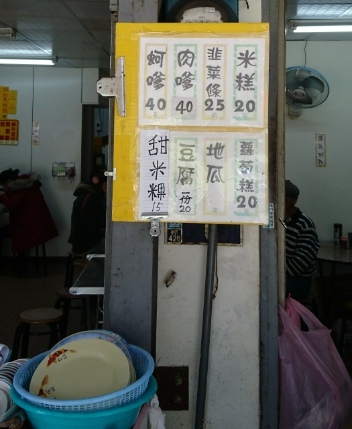 米糕 20
韭菜條 25
肉嗲 40
蚵嗲 40
蘿蔔糕 20
地瓜
豆腐 一份 20
甜米粿 15